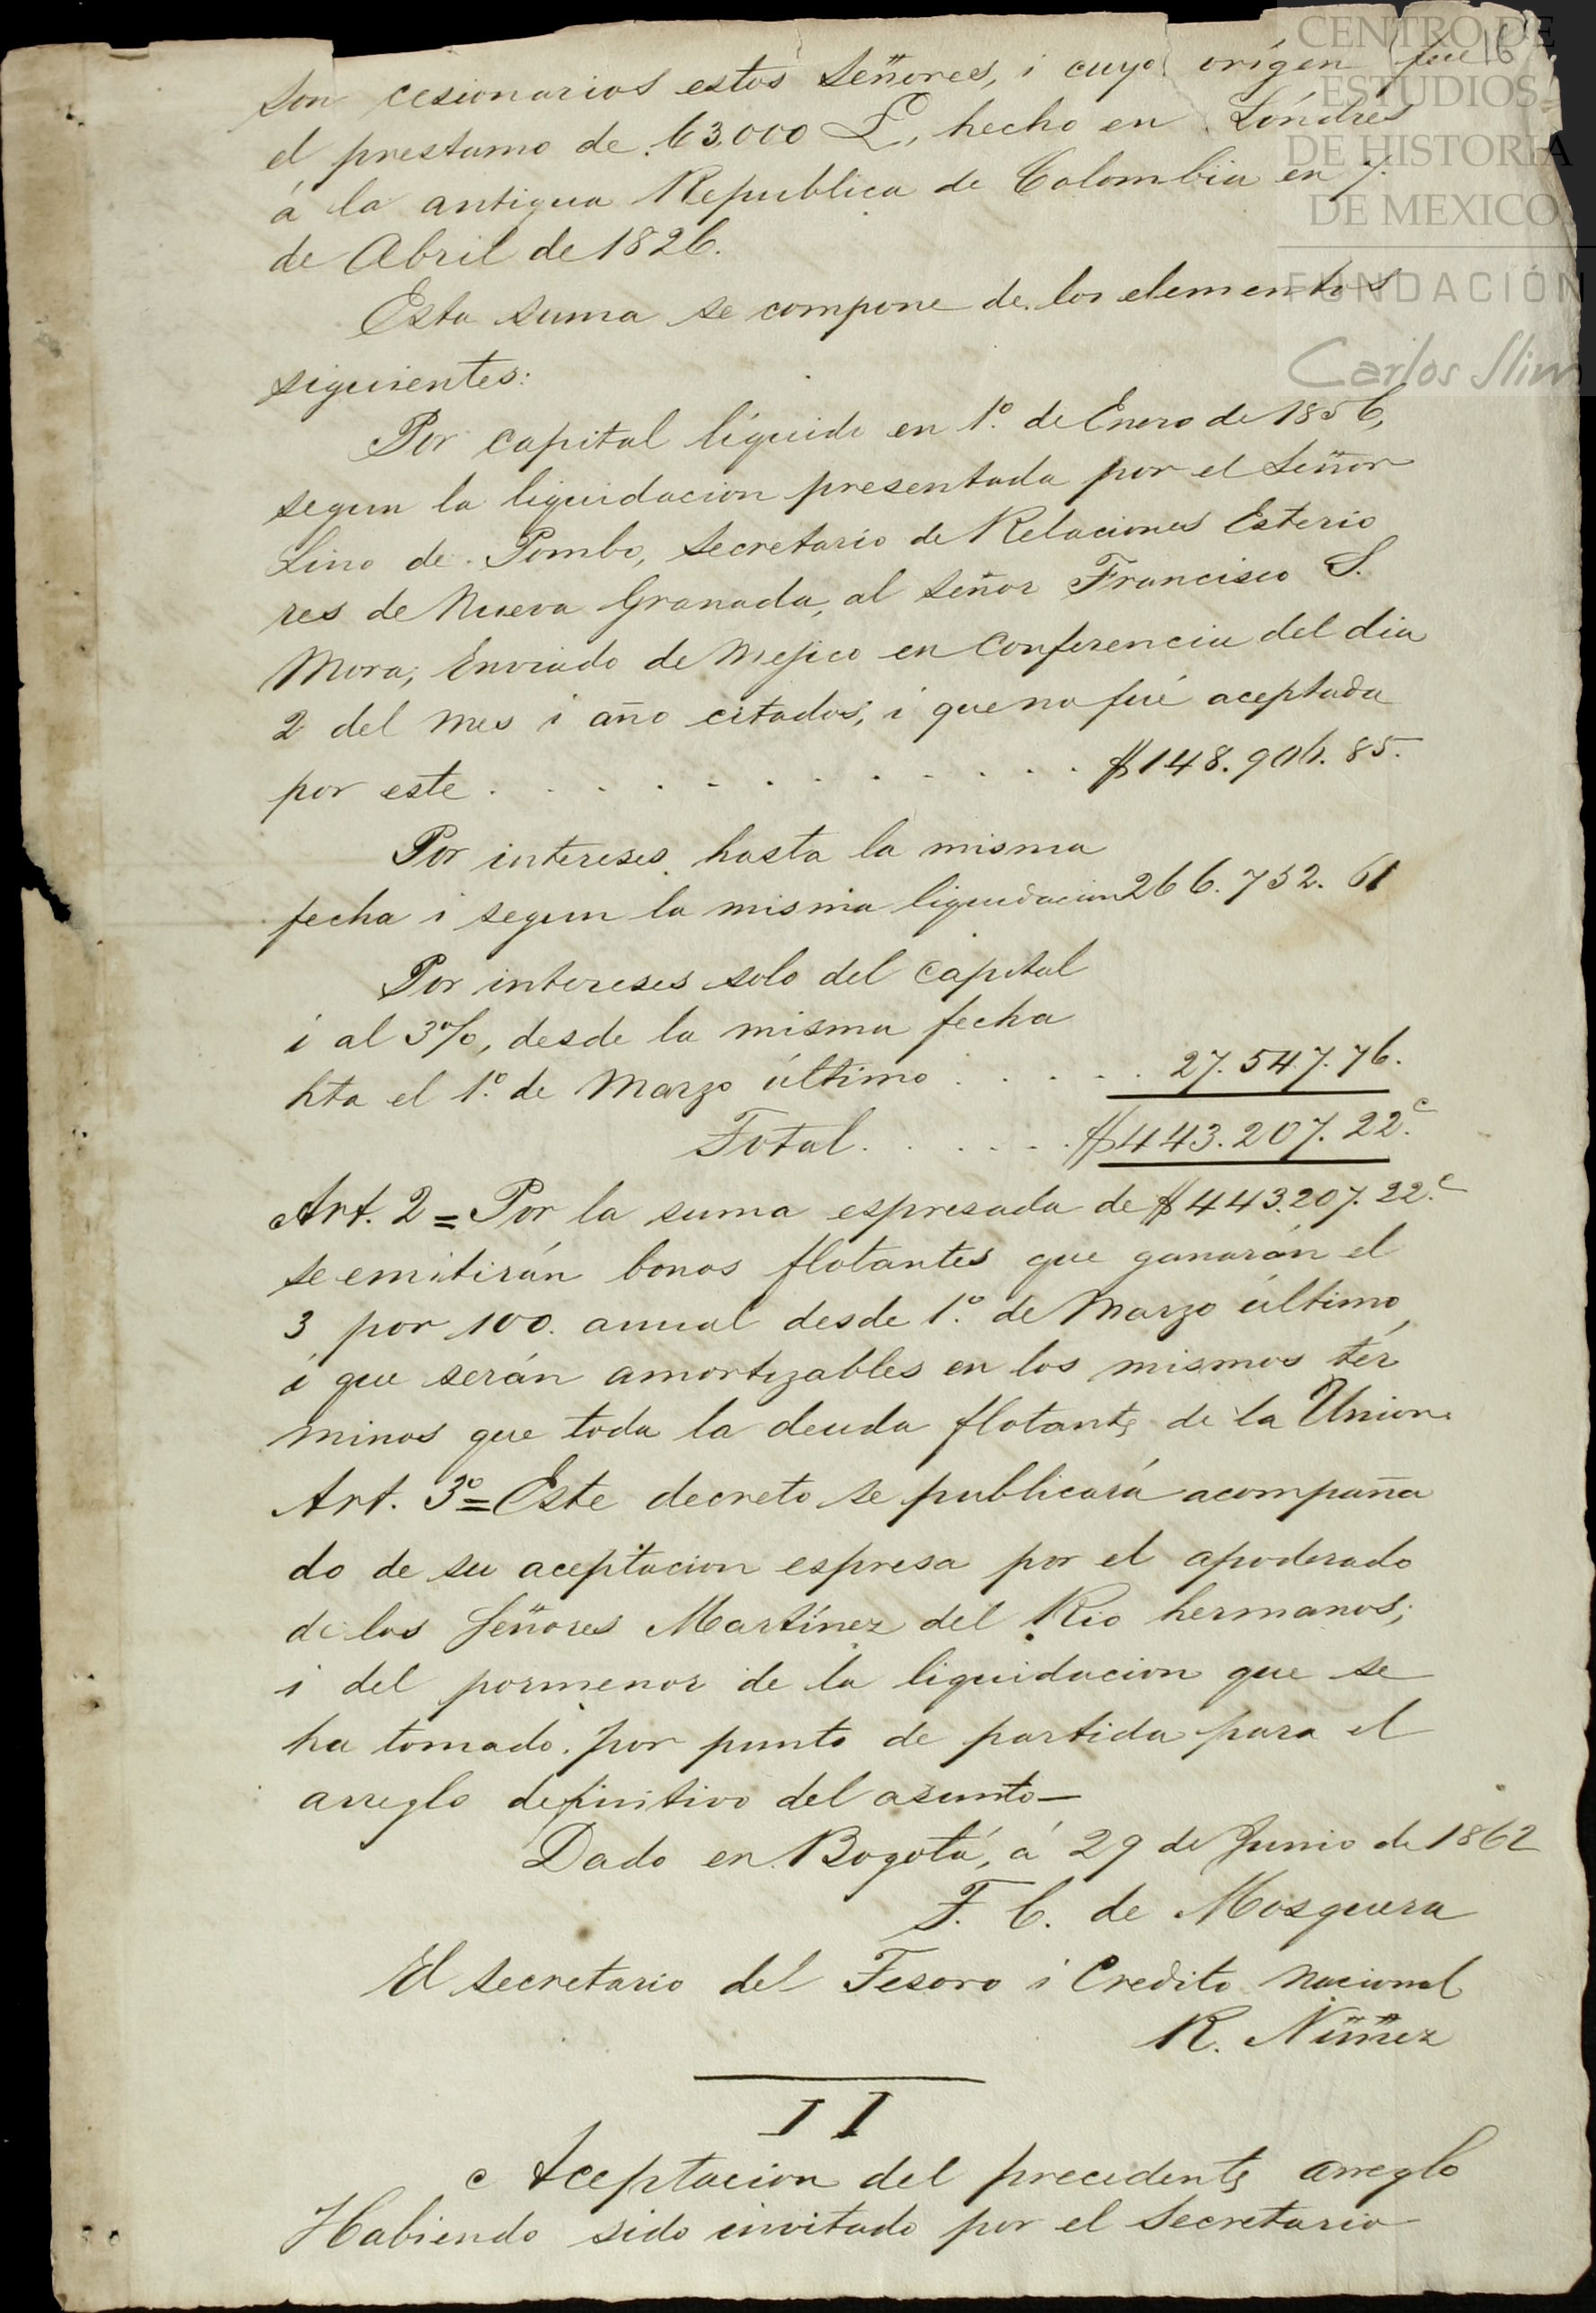 16
son cesionarios estos Señores, i cuyo orígen fué
el prestamo de 63,000 £, hecho en Lóndres
á la antigua Republica de Colombia en 7.
de Abril de 1826.
Esta suma se compone de los elementos
siguientes:
Por capital líquido en 1º. de Enero de 1856,
segun la liquidacion presentada por el Señor
Lino de Pombo, Secretario de Relaciones Esterio
res de Nueva Granada, al Señor Francisco S.
Mora, Enviado de Mejico en Conferencia del dia
2 del mes i año citados, i que no fué aceptada
por este . . . . . . . . . . . . $148.906.85.
Por intereses hasta la misma
fecha i segun la misma liquidacion 266.752.61
Por intereses solo del Capital
i al 3%, desde la misma fecha
hta el 1º. de Marzo último . . . . . 27.547.76.
Total. . . . . . $443.207.22.c
Art. 2 = Por la suma espresada de $443.207.22.c
se emitirán bonos flotantes que ganarán el
3 por 100. anual desde 1º. de Marzo último,
i que serán amortizables en los mismos tér
minos que toda la deuda flotante de la Union.
Art. 3º = Este decreto se publicará acompaña
do de su aceptacion espresa por el apoderado
de los Señores Martínez del Rio hermanos;
i del pormenor de la liquidacion que se
ha tomado por punto de partida para el
arreglo definitivo del asunto—
Dado en Bogotá, á 29 de Junio de 1862
T. C. de Mosquera
El Secretario del Tesoro i Credito Nacional
R. Núñez
II
Aceptacion del precedente arreglo
Habiendo sido invitado por el Secretario
CENTRO DE
ESTUDIOS
DE HISTORIA
DE MEXICO
FUNDACIÓN
Carlos Slim